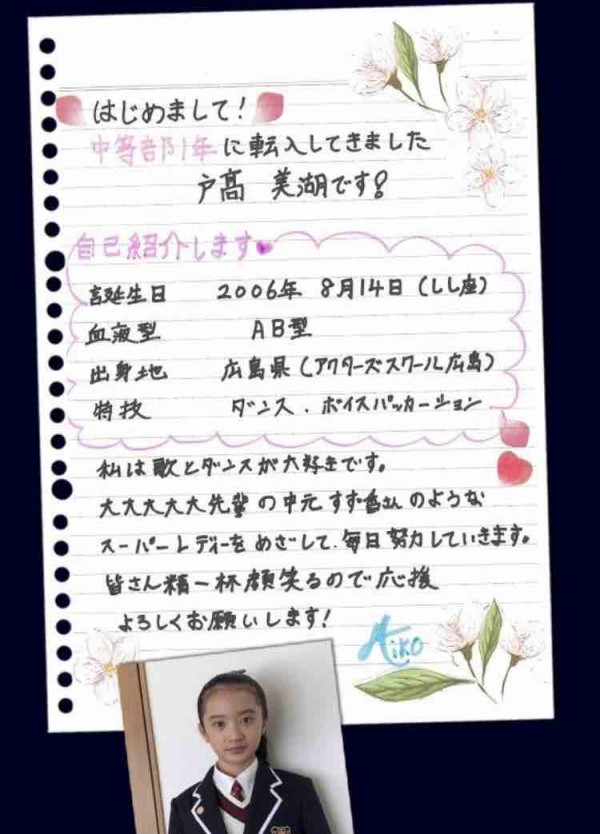 はじめまして!
中等部1年に転入してきました
戸高 美湖です!
自己紹介します
誕生日 2006年 8月14日 (しし座)
血液型 AB型
出身地 広島県 (アクターズスクール広島)
特技 ダンス . ボイスパッカーション
私は歌とダンスが大好きです。
大大大大大先輩の中元すず香さんのような
スーパーレディーをめざして、毎日努力していきます。
皆さん精一杯顔笑るので応援
よろしくお願いします!
Aiko